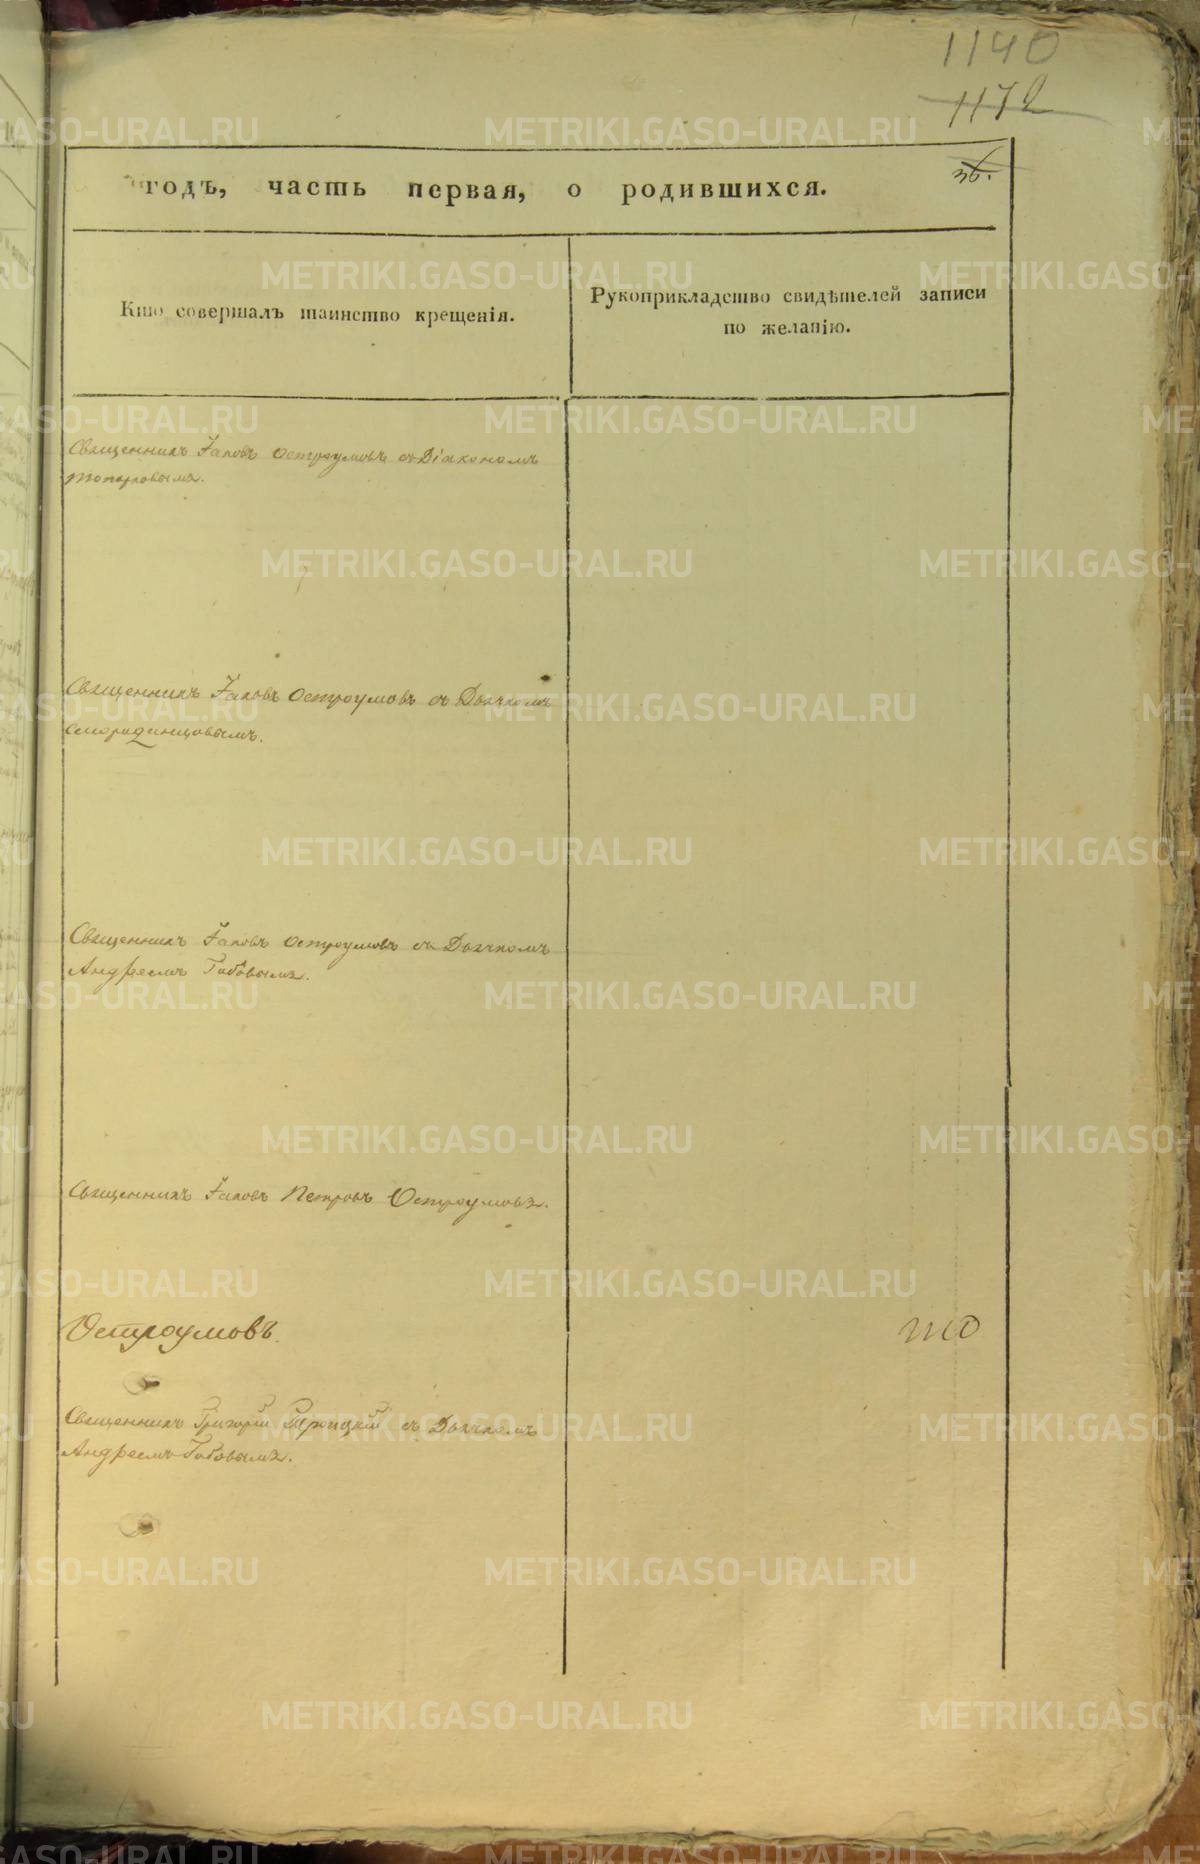 1140
1172
36.
годъ, часть первая, о родившихся.
Кто совершалъ таинство крещенія.
Рукоприкладство свидѣтелей записи
по желанію.
Священникъ Іаковъ Остроумовъ съ Діакономъ
Топорковымъ.
Священникъ Іаковъ Остроумовъ съ Дьячкомъ
Смородинцовымъ.
Священникъ Іаковъ Остроумовъ съ Дьячкомъ
Андреемъ Бабовымъ.
Священникъ Іаковъ Петровъ Остроумовъ.
Остроумовъ.
Священникъ Григорій Троицкій съ Дьячкомъ
Андреемъ Бабовымъ.
METRIKI.GASO-URAL.RU